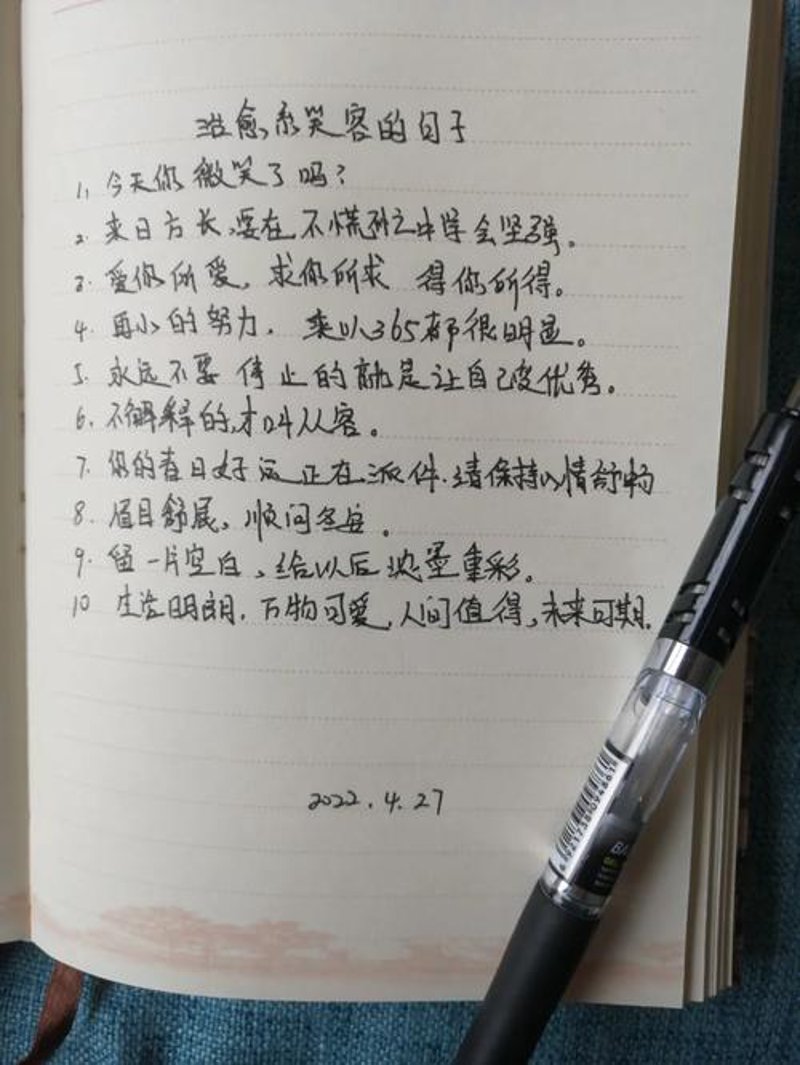 治愈系笑容的句子
1, 今天你微笑了吗?
2. 来日方长,要在不慌不忙中学会坚强。
3. 爱你所爱, 求你所求 得你所得。
4. 再小的努力, 乘以365都很明显。
5. 永远不要停止的就是让自己变优秀。
6. 不解释的,才叫从容。
7. 你的春日好运正在派件.请保持心情舒畅
8. 眉目舒展, 顺问冬安。
9. 留一片空白,给以后浓墨重彩。
10 生活明朗, 万物可爱,人间值得,未来可期.
2022.4.27